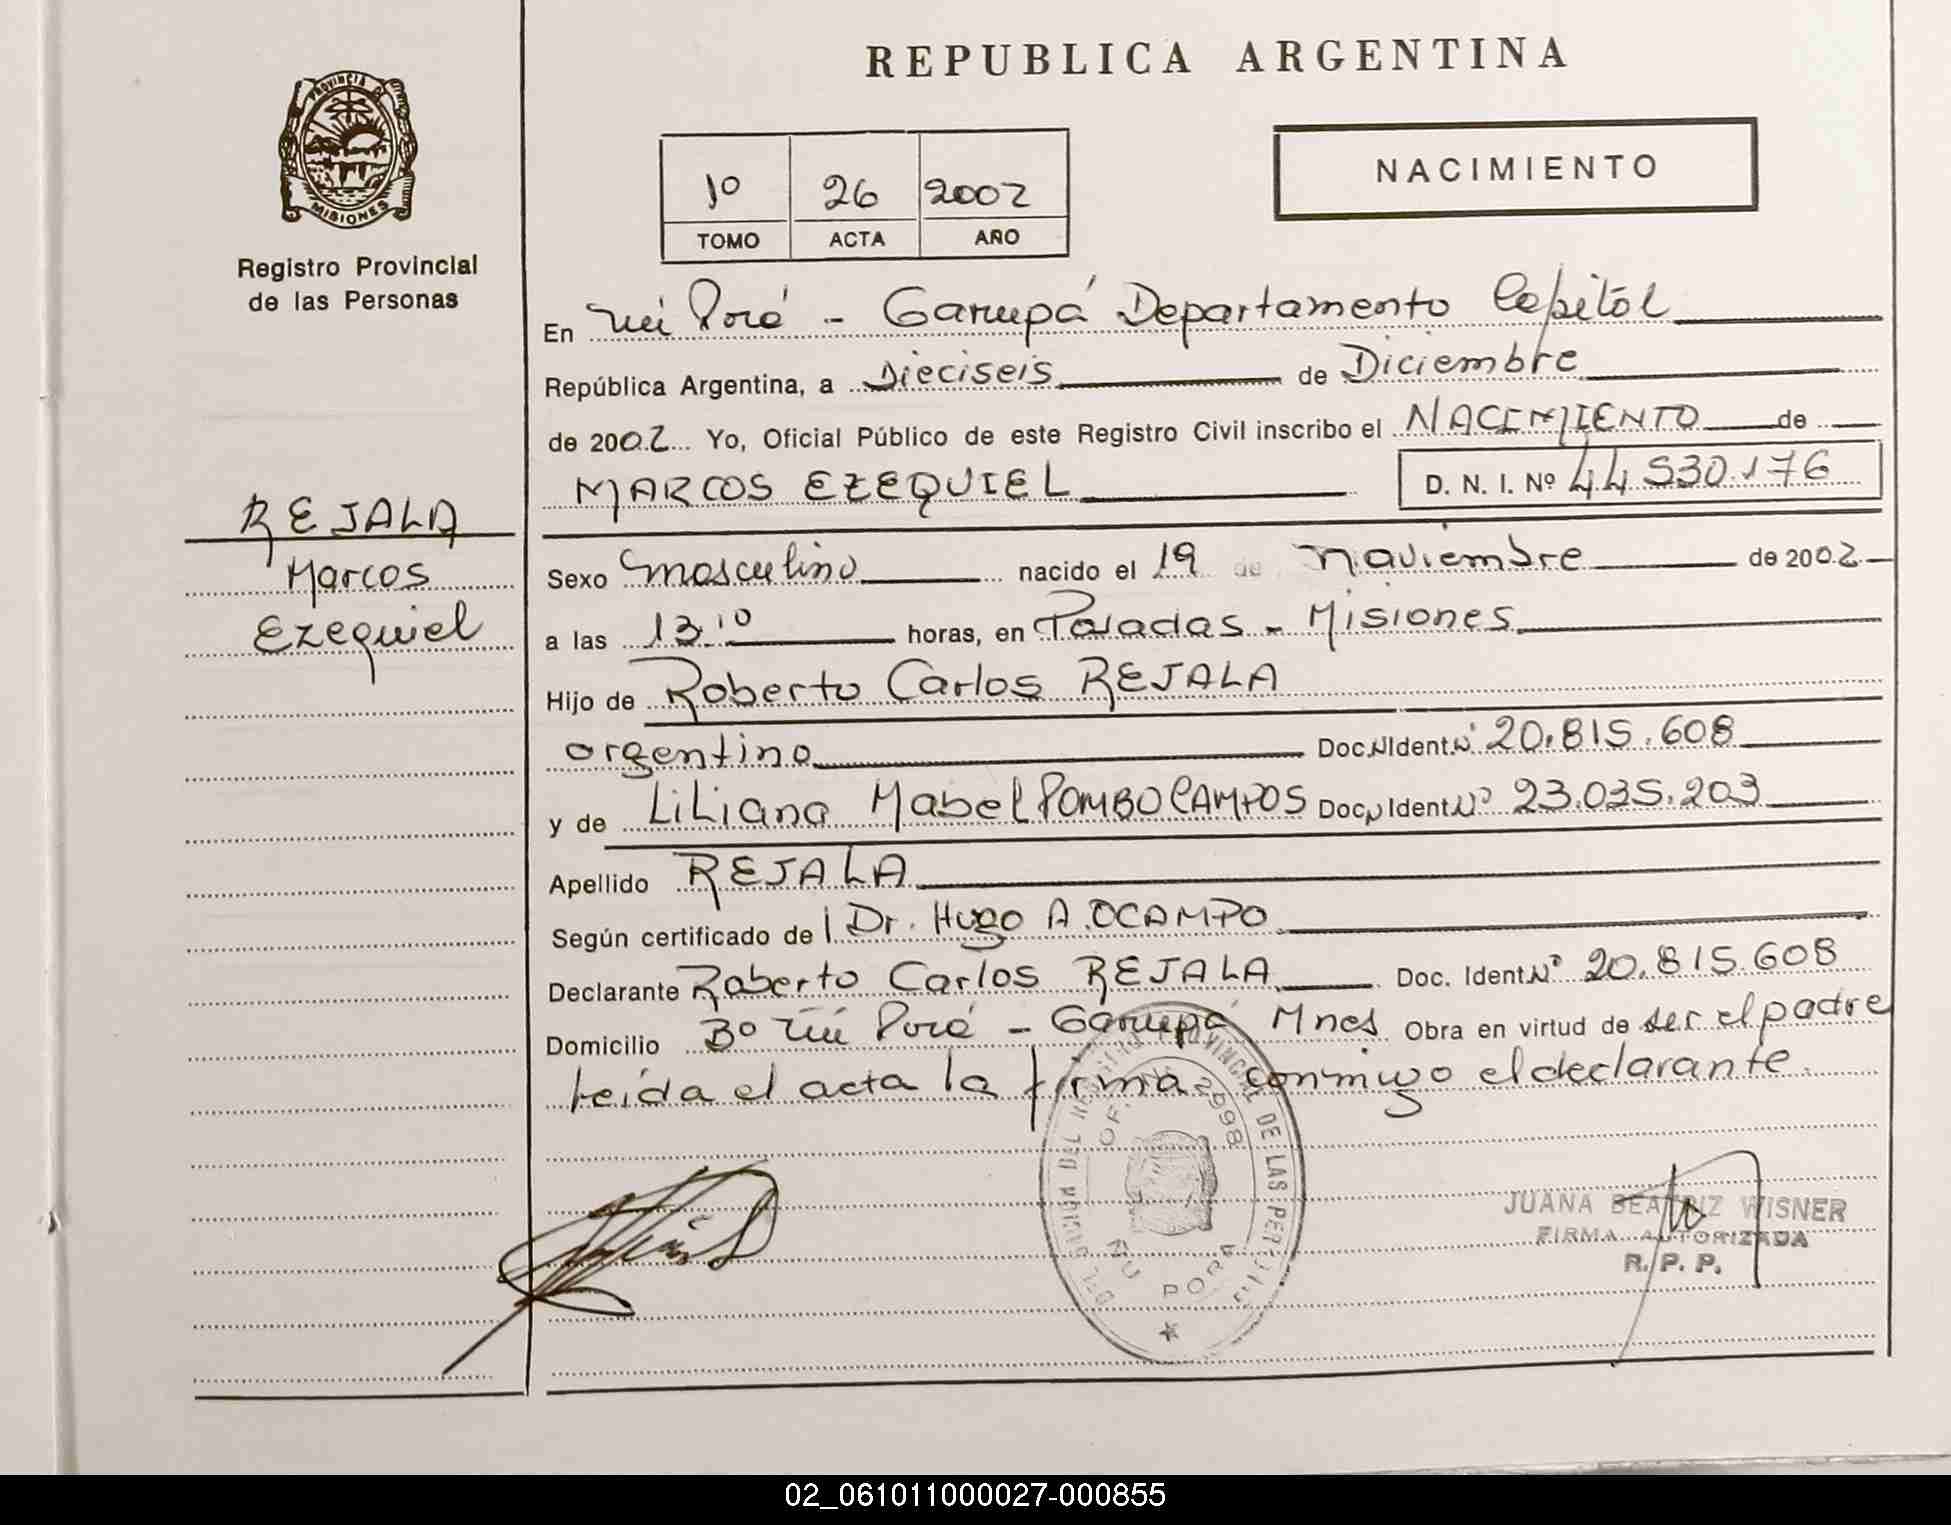 REPUBLICA ARGENTINA
PROVINCIA DE
MISIONES
Registro Provincial
de las Personas
1º 26 2002
TOMO ACTA AÑO
NACIMIENTO
En Ñú Porá - Garupá Departamento Capital
República Argentina, a Dieciseis de Diciembre
de 2002 Yo, Oficial Público de este Registro Civil inscribo el NACIMIENTO de
MARCOS EZEQUIEL D. N. I. Nº 44.530.176
REJALA
Marcos
Ezequiel
Sexo masculino nacido el 19 de noviembre de 2002
a las 13:10 horas, en Posadas - Misiones
Hijo de Roberto Carlos REJALA
argentino Doc.NIdent.Nº 20.815.608
y de Liliana Mabel POMBO CAMPOS Doc.NIdent.Nº 23.035.203
Apellido REJALA
Según certificado de l Dr. Hugo A. OCAMPO
Declarante Roberto Carlos REJALA Doc. Ident.Nº 20.815.608
Domicilio Bº Ñú Porá - Garupá Mnes Obra en virtud de ser el padre
Leída el acta la firma conmigo el declarante.
REGISTRO PROVINCIAL DE LAS PER
OF. 2998
ÑU PORA
JUANA BEATRIZ WISNER
FIRMA AUTORIZADA
R. P. P.
02_061011000027-000855